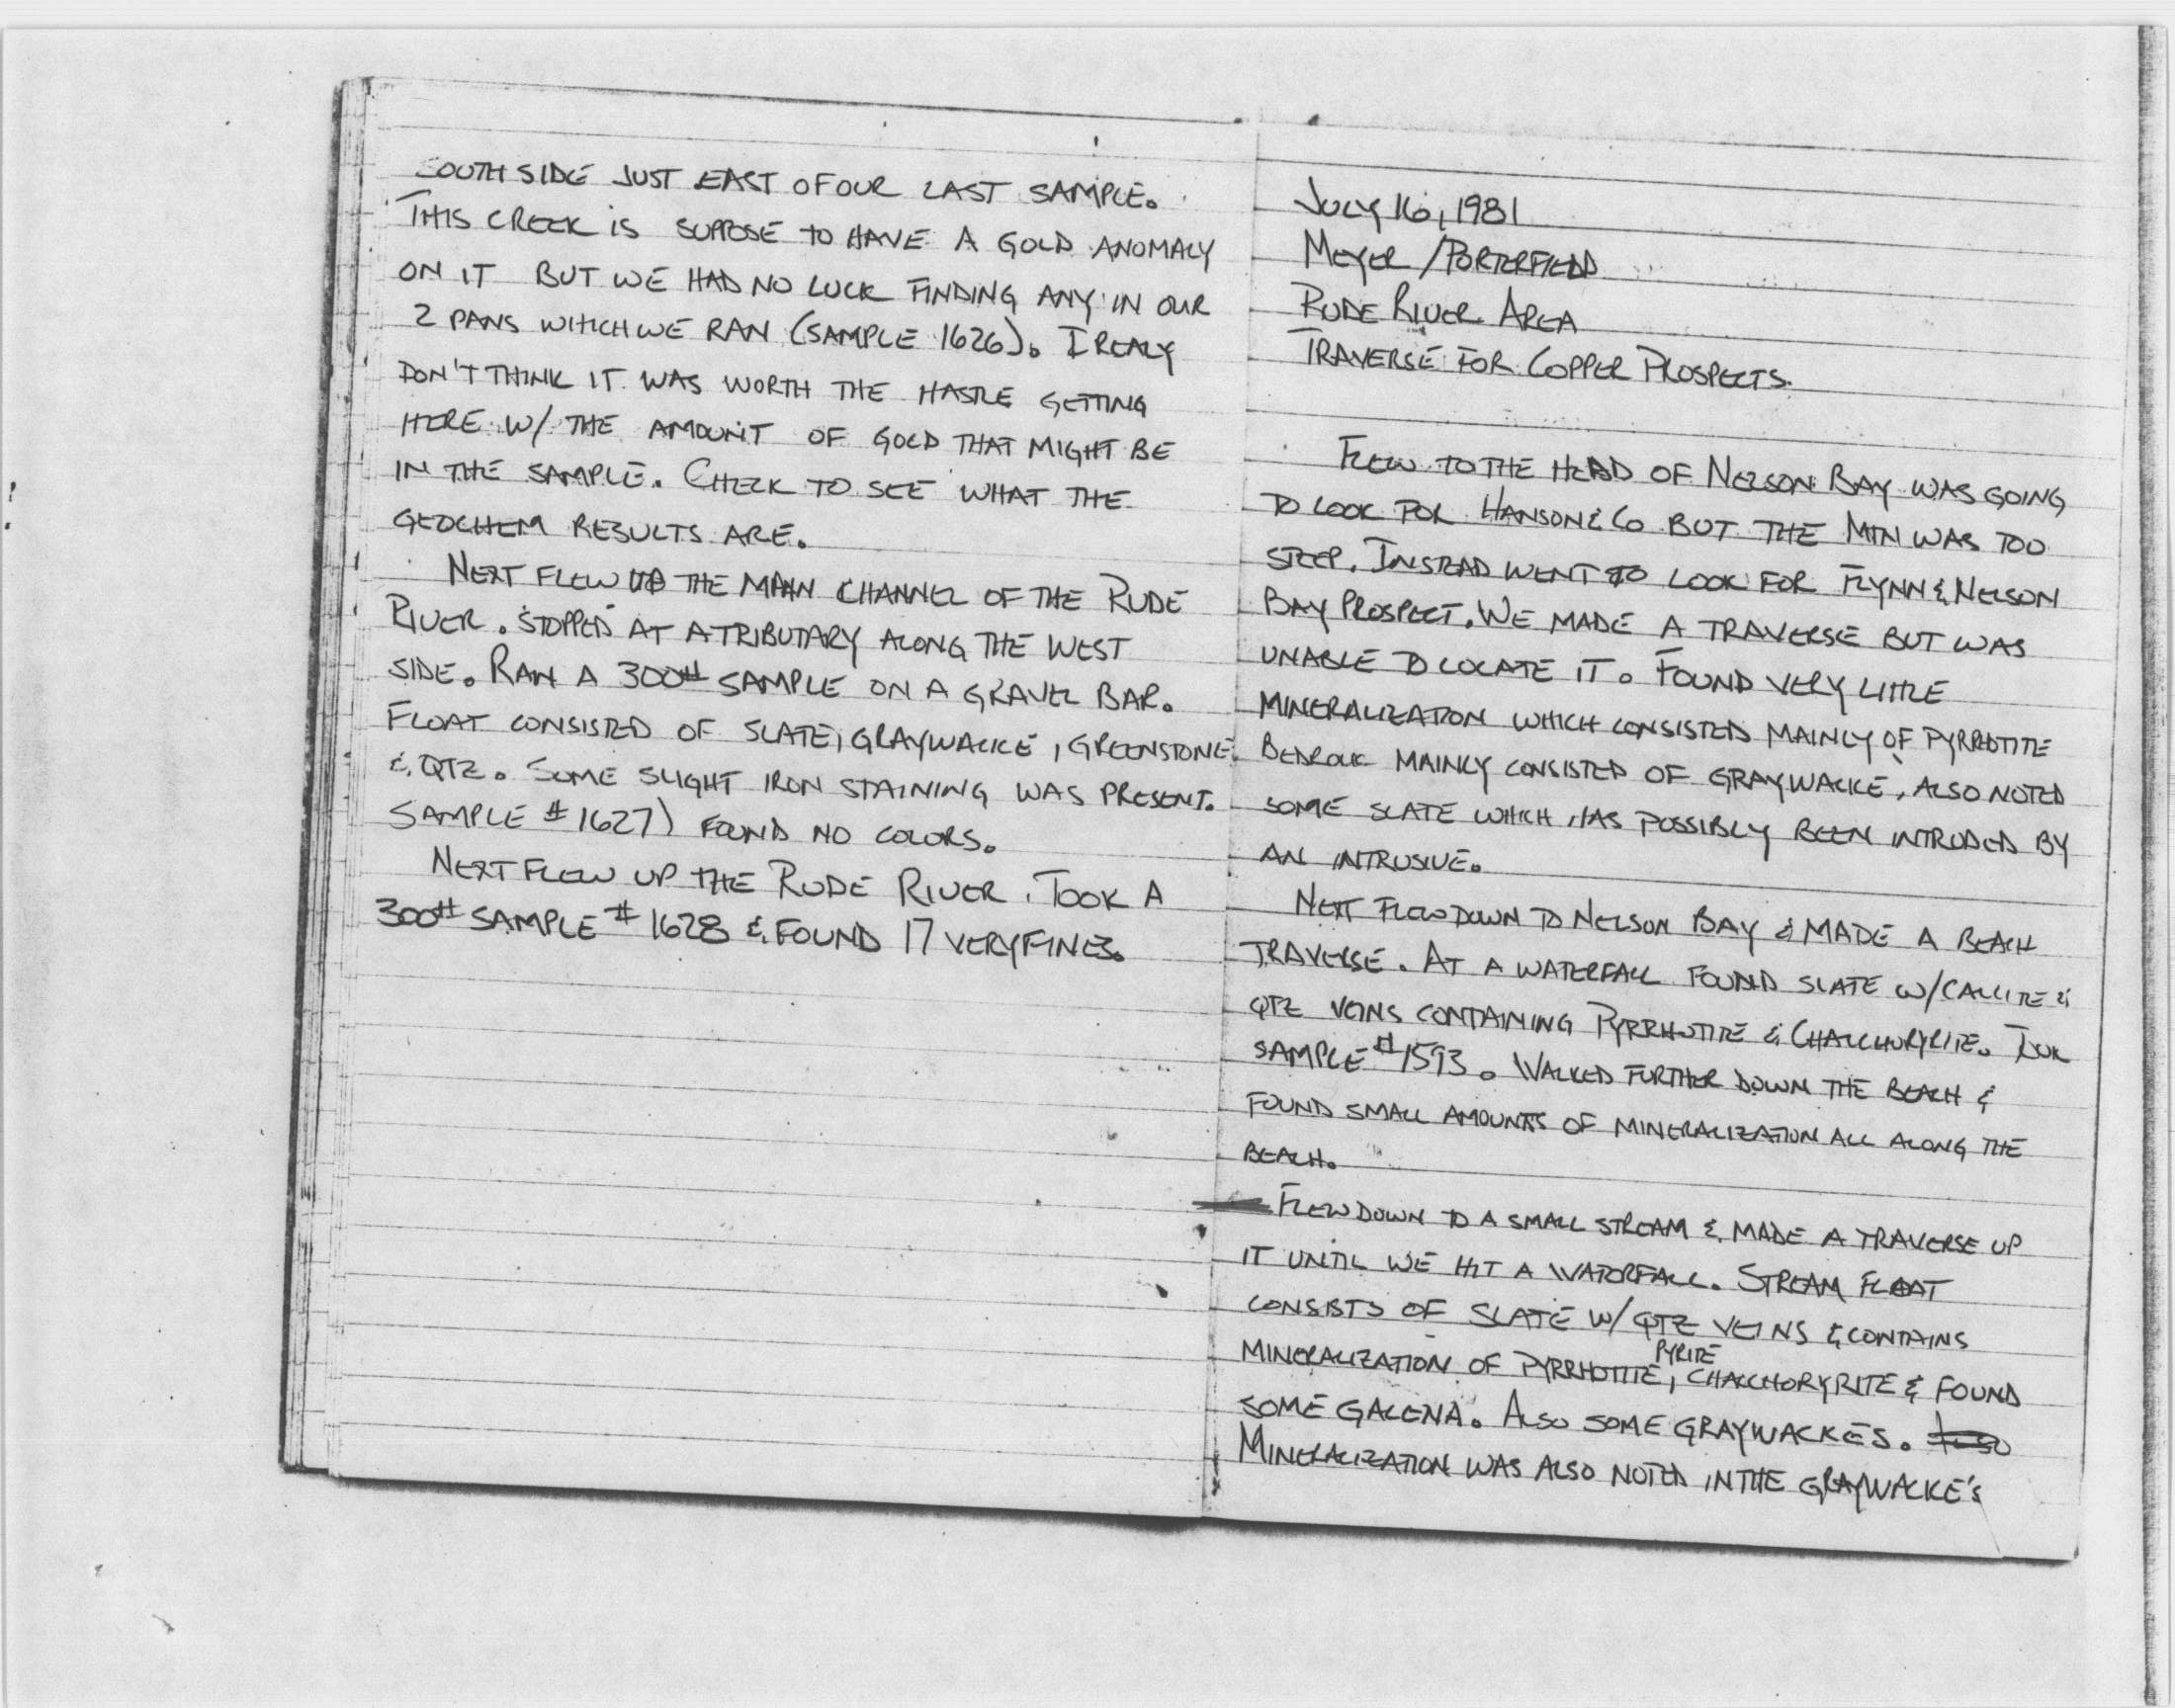 SOUTH SIDE JUST EAST OF OUR LAST SAMPLE.
THIS CREEK IS SUPPOSE TO HAVE A GOLD ANOMALY
ON IT BUT WE HAD NO LUCK FINDING ANY IN OUR
2 PANS WHICH WE RAN (SAMPLE 1626). I REALY
DON'T THINK IT WAS WORTH THE HASTLE GETTING
HERE W/ THE AMOUNT OF GOLD THAT MIGHT BE
IN THE SAMPLE. CHECK TO SEE WHAT THE
GEOCHEM RESULTS ARE.
NEXT FLEW UP THE MAIN CHANNEL OF THE RUDE
RIVER. STOPPED AT A TRIBUTARY ALONG THE WEST
SIDE. RAN A 300# SAMPLE ON A GRAVEL BAR.
FLOAT CONSISTED OF SLATE, GRAYWACKE, GREENSTONE
& QTZ. SOME SLIGHT IRON STAINING WAS PRESENT.
SAMPLE #1627) FOUND NO COLORS.
NEXT FLEW UP THE RUDE RIVER. TOOK A
300# SAMPLE #1628 & FOUND 17 VERY FINES.
JULY 16, 1981
MEYER / PORTERFIELD
RUDE RIVER AREA
TRAVERSE FOR COPPER PROSPECTS.
FLEW TO THE HEAD OF NELSON BAY WAS GOING
TO LOOK FOR HANSON & CO BUT THE MTN WAS TOO
STEEP. INSTEAD WENT TO LOOK FOR FLYNN & NELSON
BAY PROSPECT. WE MADE A TRAVERSE BUT WAS
UNABLE TO LOCATE IT. FOUND VERY LITTLE
MINERALIZATION WHICH CONSISTED MAINLY OF PYRRHOTITE
BEDROCK MAINLY CONSISTED OF GRAYWACKE, ALSO NOTED
SOME SLATE WHICH HAS POSSIBLY BEEN INTRUDED BY
AN INTRUSIVE.
NEXT FLEW DOWN TO NELSON BAY & MADE A BEACH
TRAVERSE. AT A WATERFALL FOUND SLATE W/ CALCITE &
QTZ VEINS CONTAINING PYRRHOTITE & CHALCHOPYRITE. TOOK
SAMPLE #1593. WALKED FURTHER DOWN THE BEACH &
FOUND SMALL AMOUNTS OF MINERALIZATION ALL ALONG THE
BEACH.
FLEW DOWN TO A SMALL STREAM & MADE A TRAVERSE UP
IT UNTIL WE HIT A WATERFALL. STREAM FLOAT
CONSISTS OF SLATE W/ QTZ VEINS & CONTAINS
MINERALIZATION OF PYRRHOTITE, PYRITE CHALCHOPYRITE & FOUND
SOME GALENA. ALSO SOME GRAYWACKES. ALSO
MINERALIZATION WAS ALSO NOTED IN THE GRAYWACKE'S